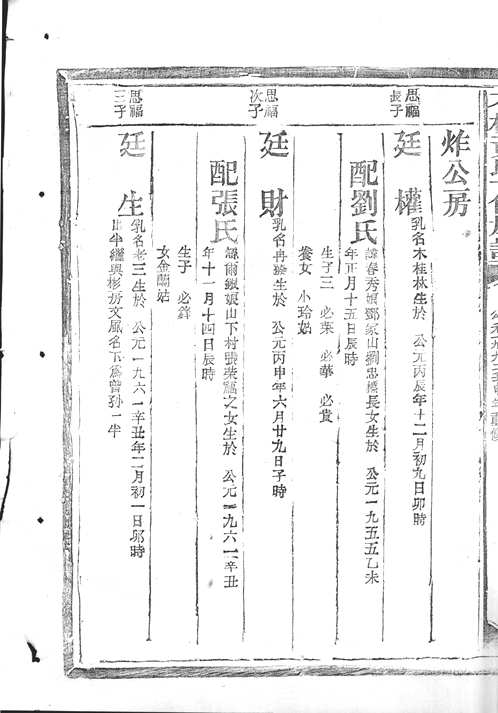 炸公房
思福
長子
廷權
乳名木桂林生於 公元丙辰年十二月初九日卯時
配劉氏
諱春秀娘鄧家山劉忠橋長女生於 公元一九五五乙未
年正月十五日辰時
生子三 必榮 必華 必貴
養女 小玲姑
思福
次子
廷財
乳名冉 生於 公元丙申年六月廿九日子時
配張氏
諱爾銀娘山下村張榮福之女生於 公元一九六一辛丑
年十一月十四日辰時
生子 必鋒
女金蘭姑
思福
三子
廷生
乳名老三生於 公元一九六一辛丑年二月初一日卯時
出半繼興彬房文風名下為曾孫一半